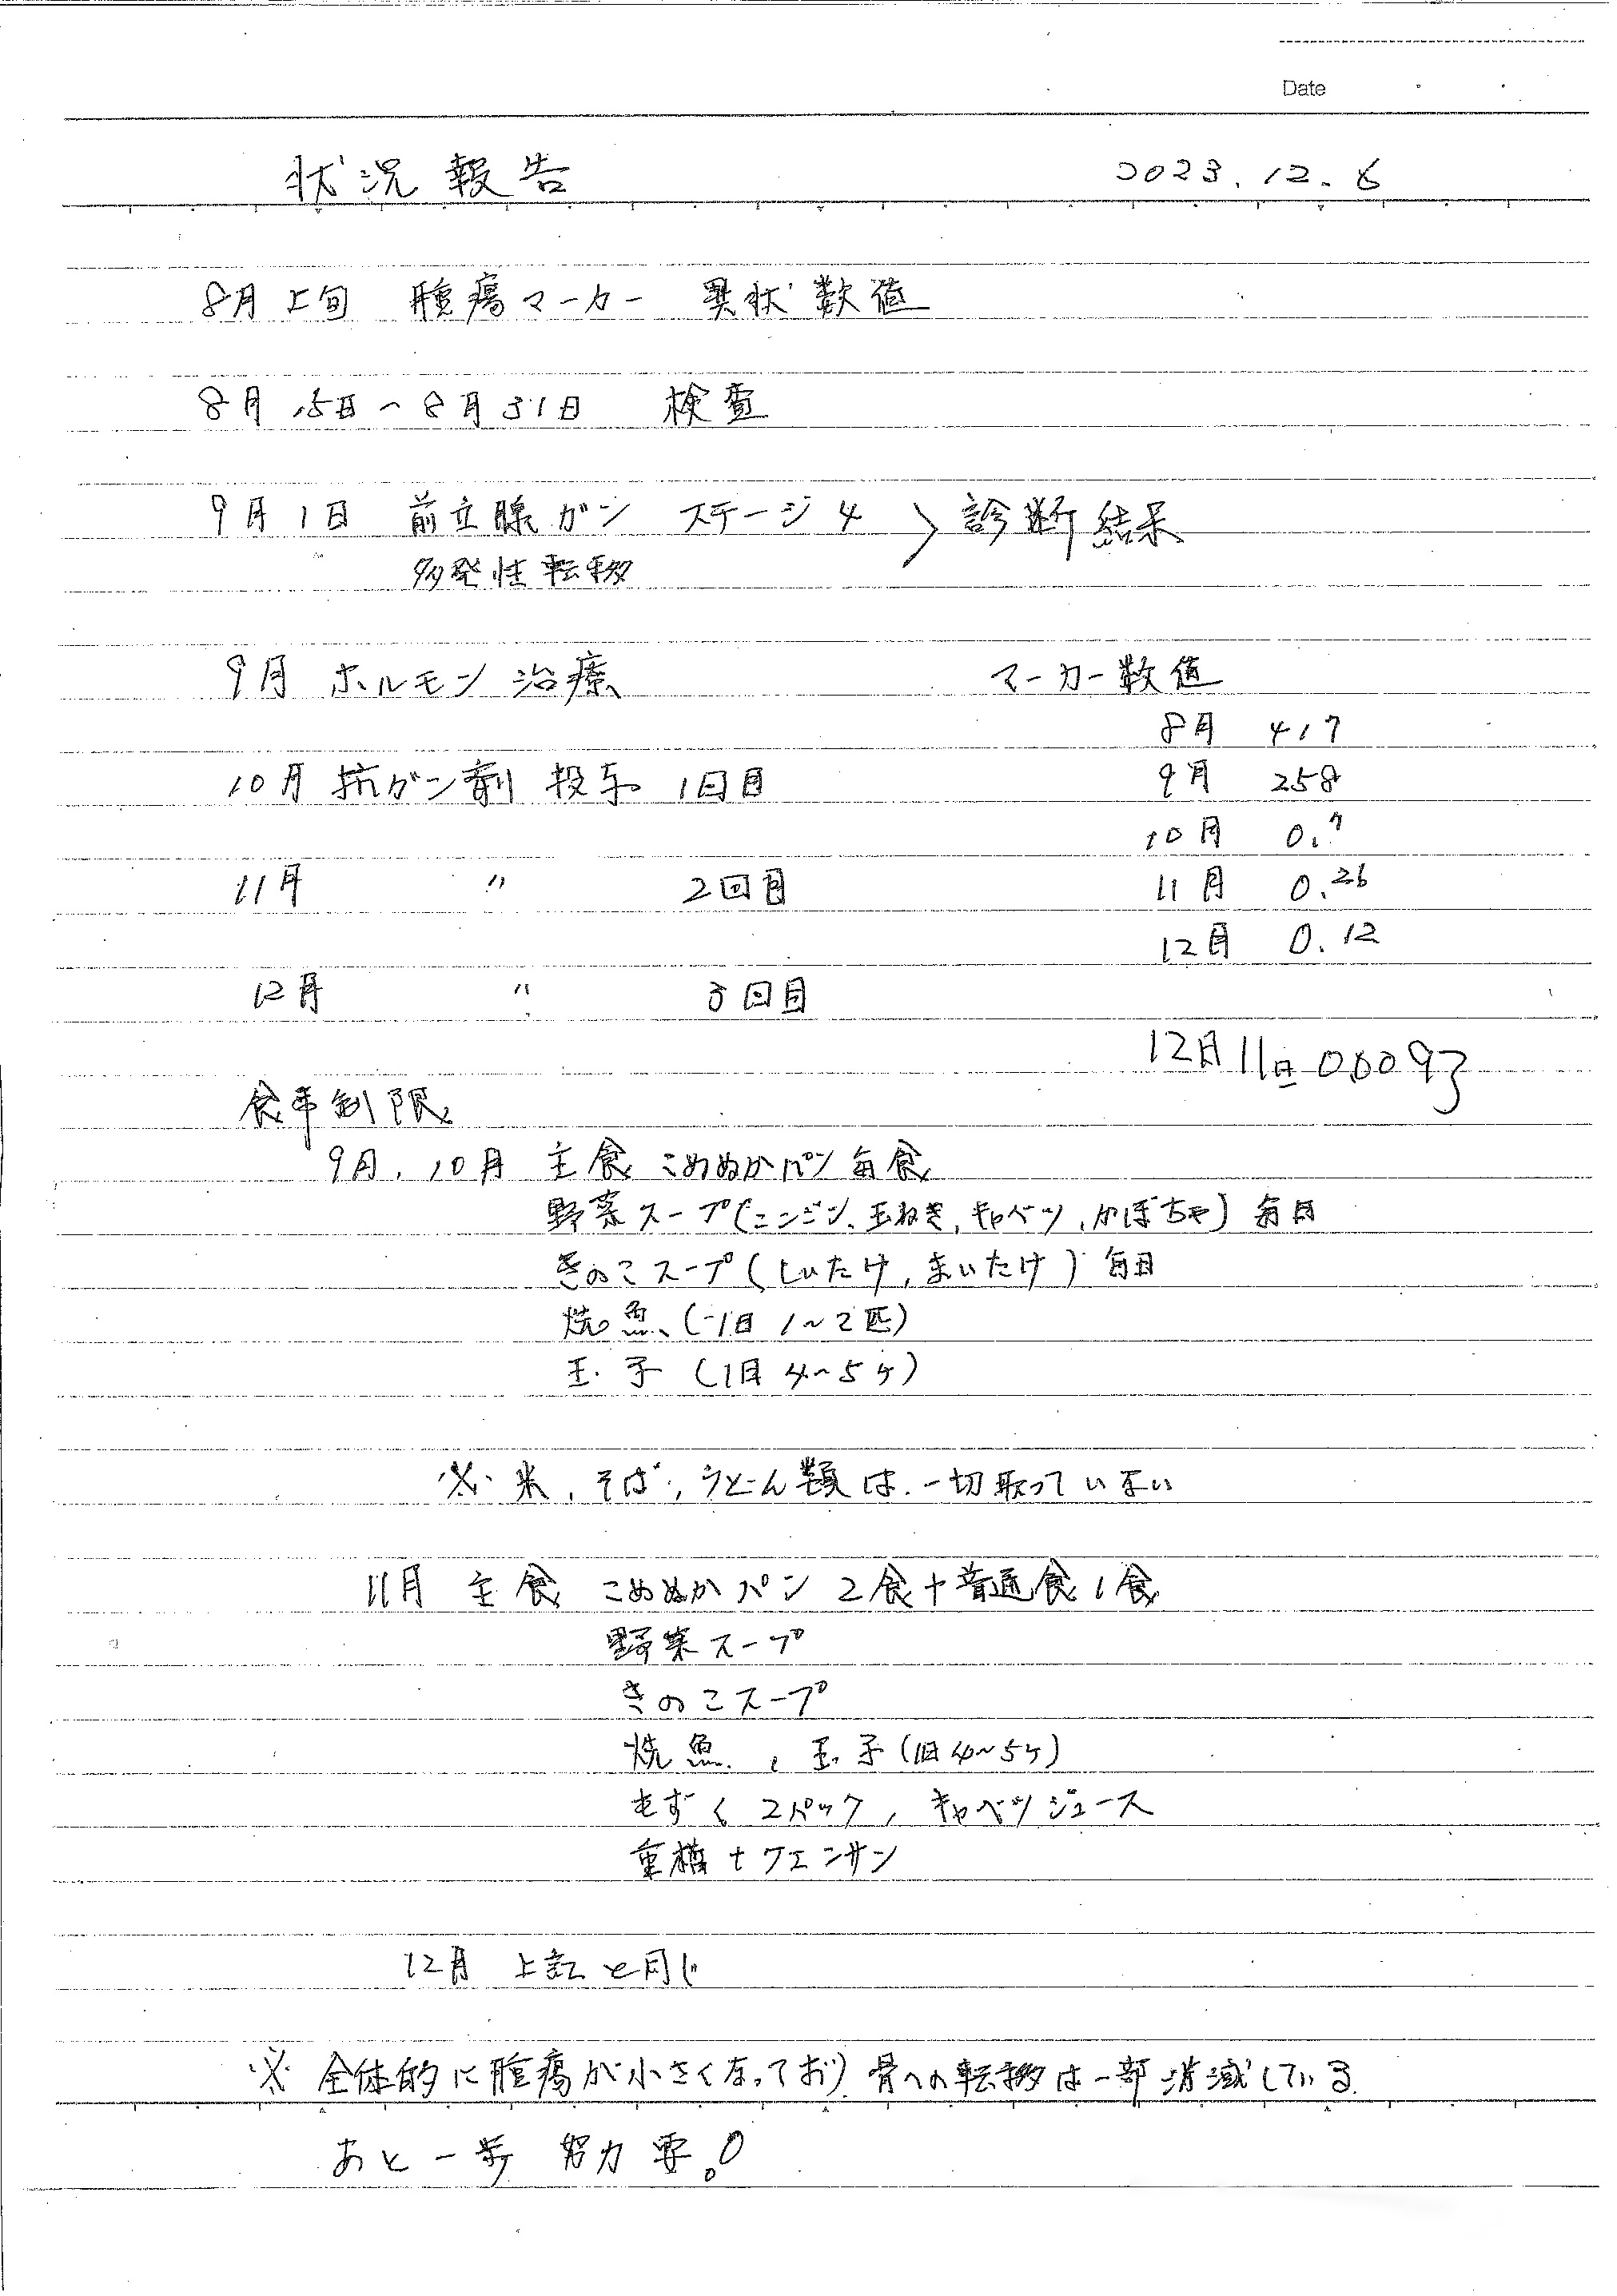 Date
状況報告 2023.12.6
8月上旬 腫瘍マーカー 異状数値
8月15日~8月31日 検査
9月1日 前立腺ガン ステージ4 〉診断結果
多発性転移
9月 ホルモン治療 マーカー数値
8月 417
10月 抗ガン剤 投与 1回目 9月 258
10月 0.7
11月 〃 2回目 11月 0.26
12月 0.12
12月 〃 3回目
12月11日
食事制限
9月, 10月 主食 こめぬかパン 毎食
野菜スープ(ニンジン、玉ねぎ, キャベツ, かぼちゃ) 毎日
きのこスープ(しいたけ, まいたけ) 毎日
焼魚 (1日1~2匹)
玉子 (1日4~5ケ)
※ 米, そば, うどん類は一切取っていない
11月 主食 こめぬかパン 2食+普通食1食
野菜スープ
きのこスープ
焼魚, 玉子(1日4~5ケ)
もずく 2パック, キャベツジュース
重槽+クエンサン
12月 上記と同じ
※ 全体的に腫瘍が小さくなっており 骨への転移は一部消滅している
あと一歩 努力要。